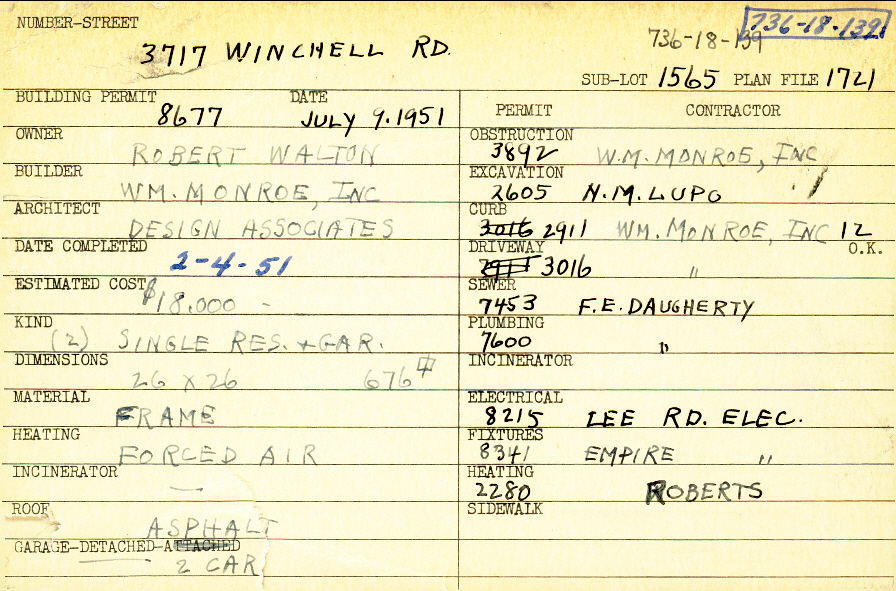 NUMBER-STREET
3717 WINCHELL RD.
736-18-139
736-18-139
SUB-LOT 1565 PLAN FILE 1721
BUILDING PERMIT DATE
8677 JULY 9.1951
OWNER
ROBERT WALTON
BUILDER
WM. MONROE, INC
ARCHITECT
DESIGN ASSOCIATES
DATE COMPLETED
2-4-51
ESTIMATED COST
$18.000 -
KIND
(2) SINGLE RES. + GAR.
DIMENSIONS
26 X 26 676
MATERIAL
FRAME
HEATING
FORCED AIR
INCINERATOR
—
ROOF
ASPHALT
GARAGE-DETACHED-ATTACHED
2 CAR
PERMIT CONTRACTOR
OBSTRUCTION
3892 W.M. MONROE, INC
EXCAVATION
2605 N.M. LUPO
CURB
3016 2911 WM. MONROE, INC 12
DRIVEWAY O.K.
2911 3016 "
SEWER
7453 F.E. DAUGHERTY
PLUMBING
7600 "
INCINERATOR
ELECTRICAL
8215 LEE RD. ELEC.
FIXTURES
8341 EMPIRE "
HEATING
2280 ROBERTS
SIDEWALK